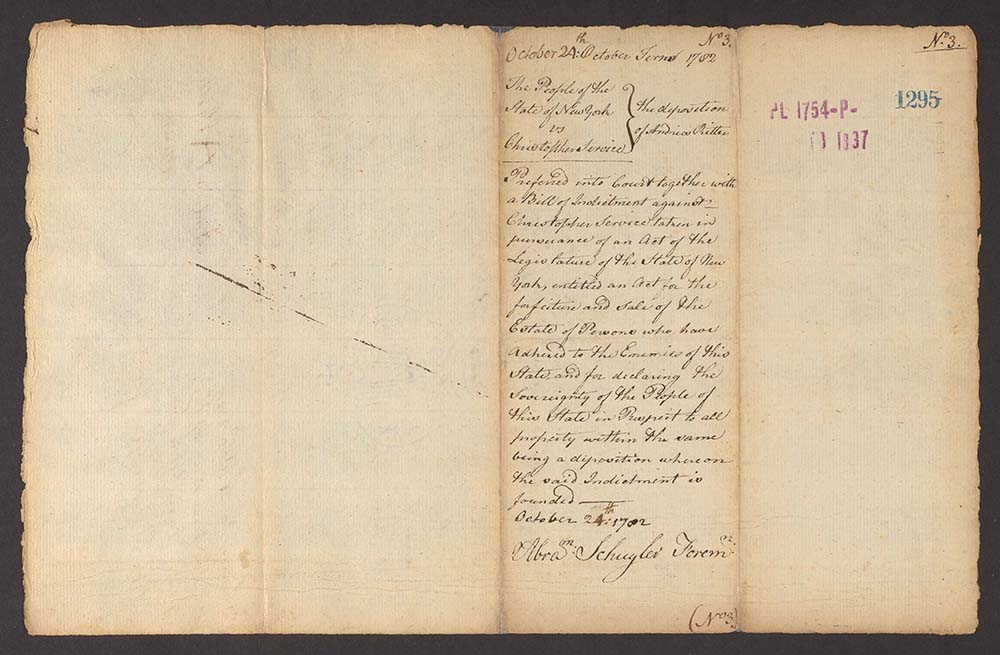 No. 3.
October 24th: October Term 1782
The People of the
State of New York
vs
Christopher Service
the deposition
of Andries Ritter
Preferred into Court together with
a Bill of Indictment against
Christopher Service taken in
pursuance of an Act of the
Legislature of the State of New
York, entitled an Act for the
forfeiture and Sale of the
Estate of Persons who have
Adhered to the Enemies of this
State, and for declaring the
Sovereignty of the People of
this State in Respect to all
property within the same
being a deposition whereon
the said Indictment is
founded
October 24th: 1782
Abram: Schuyler Foremn.
(No 3)
No. 3.
1295
PL 1754-P-
1837